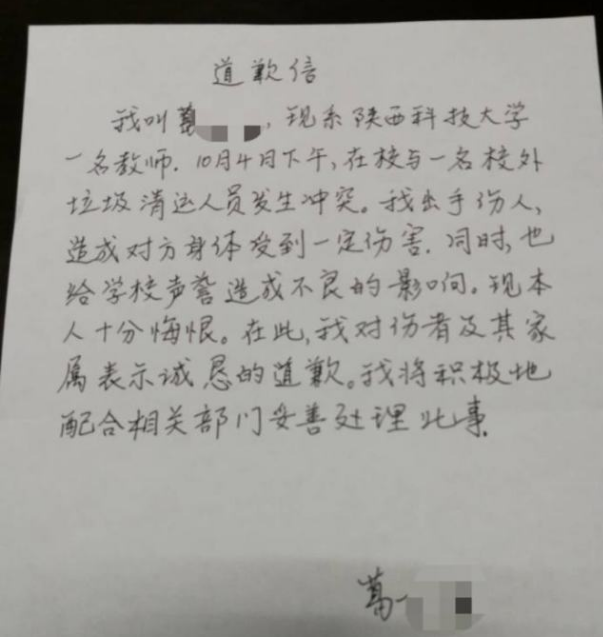 道歉信
我叫葛，现系陕西科技大学
一名教师.10月4日下午,在校与一名校外
垃圾清运人员发生冲突。我出手伤人,
造成对方身体受到一定伤害.同时,也
给学校声誉造成不良的影响。现本
人十分悔恨。在此,我对伤者及其家
属表示诚恳的道歉。我将积极地
配合相关部门妥善处理此事.
葛